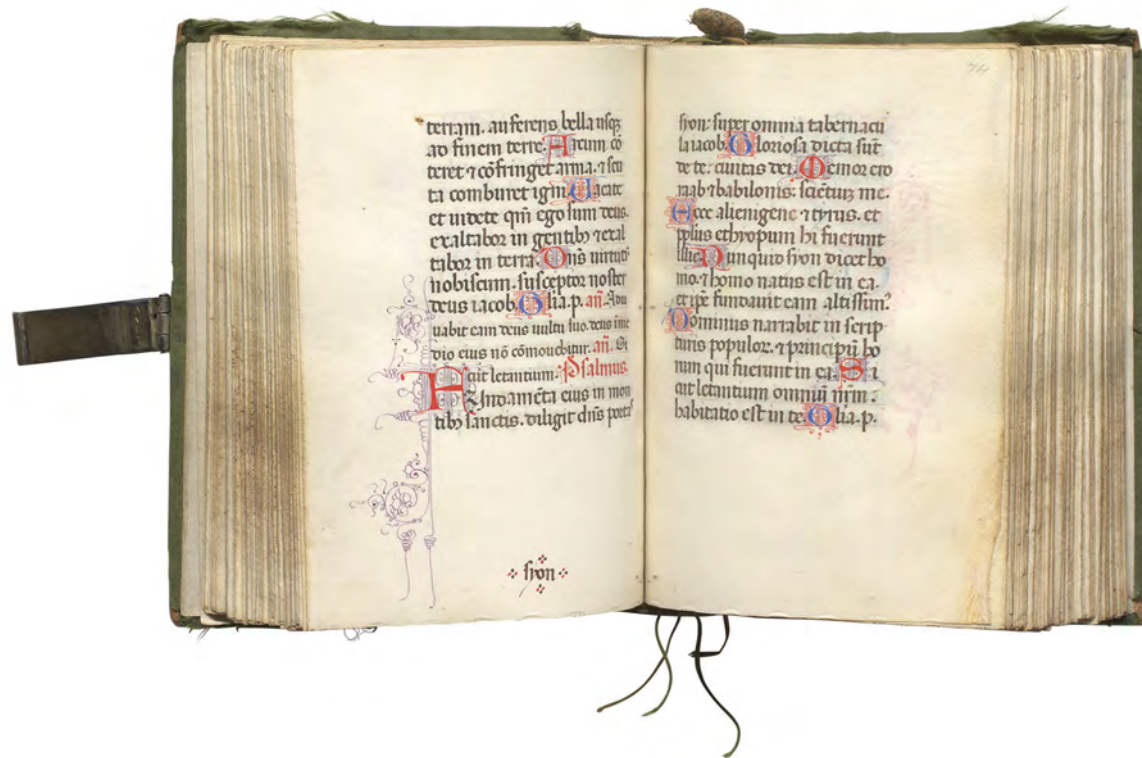 terram. auferens bella usq̢
ad finem terre. Arcum cō
teret ⁊ cōfringet arma. ⁊ scu
ta comburet igni. Uacate
et uidete qm̄ ego sum deus.
exaltabor in gentibꝫ ⁊ exal
tabor in terra. Dn̄s uirtutꝫ
nobiscum. susceptor noster
deus iacob. Glīa.p. an̄. Adiu
uabit eam deus uultu suo. deus ī me
dio eius nō cōmouebitur. an̄. Si
cut letantium. Psalmus.
Fundamēta eius in mon
tibꝫ sanctis. diligit dn̄s portas
syon
syon: super omnia tabernacu
la iacob. Gloriosa dicta sūt
de te: ciuitas dei. Memor ero
raab ⁊ babilonis: sciētiuꝫ me.
Ecce alienigene ⁊ tyrus. et
pplūs ethyopum hi fuerunt
illic. Nunquid syon dicet ho
mo. ⁊ homo natus est in ea.
et ip̄e fundauit eam altissimꝰ
Dominus narrabit in scrip
turis populoꝝ. ⁊ principū ho
rum qui fuerunt in ea. Si
cut letantium omniū nr̄m.
habitatio est in te. Glīa.p.